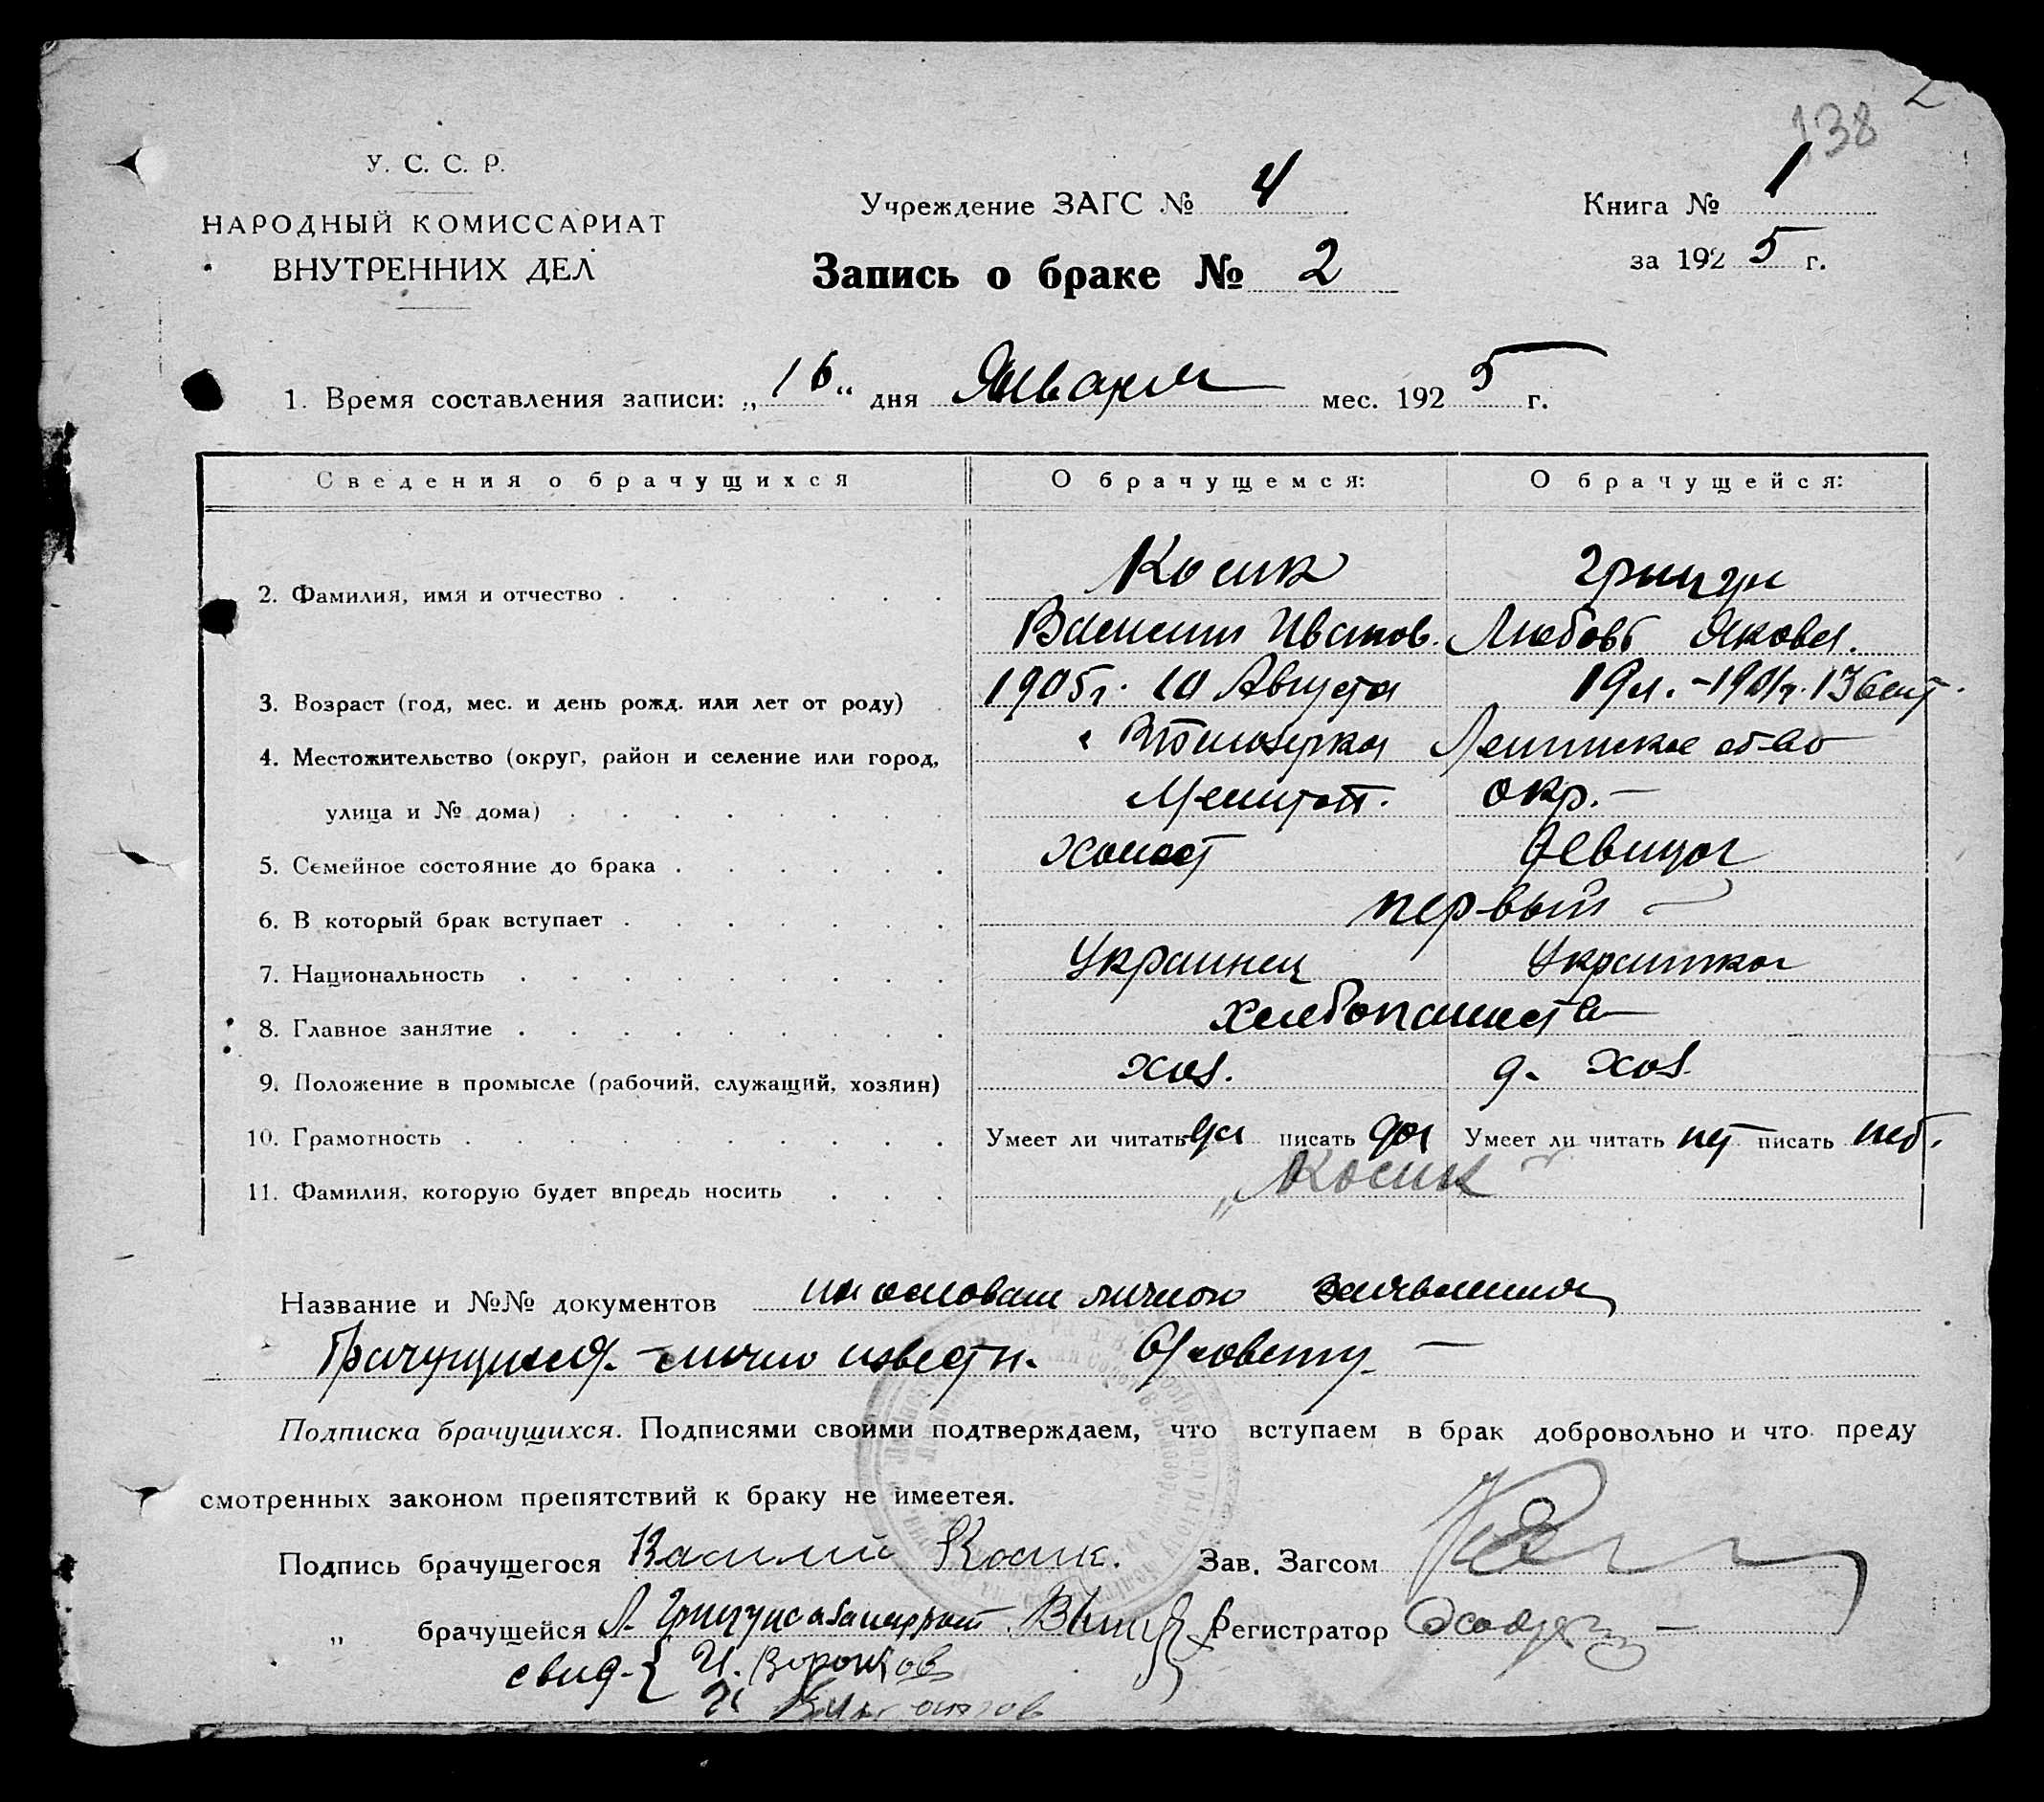 2
138
У. С. С. Р.
НАРОДНЫЙ КОМИССАРИАТ
ВНУТРЕННИХ ДЕЛ
Учреждение ЗАГС № 4
Запись о браке № 2
Книга № 1
за 1925 г.
1. Время составления записи: „16“ дня Января мес. 1925 г.
Сведения о брачущихся О брачущемся: О брачущейся:
2. Фамилия, имя и отчество Косик Грицун
Василий Иванов. Любовь Яковл.
3. Возраст (год, мес. и день рожд. или лет от роду) 1905г. 10 Августа 19 л. - 13 Сент.
4. Местожительство (округ, район и селение или город,
улица и № дома) Мелитоп. окр. —
5. Семейное состояние до брака холост девица
6. В который брак вступает первый
7. Национальность Украинец Украинка
8. Главное занятие хлебопашество
9. Положение в промысле (рабочий, служащий, хозяин) хоз. д. хоз.
10. Грамотность Умеет ли читать да писать да Умеет ли читать нет писать нет.
11. Фамилия, которую будет впредь носить „Косик“
Название и №№ документов на основан личного заявления
Брачущиеся - лично извест. С/совету —
Подписка брачущихся. Подписями своими подтверждаем, что вступаем в брак добровольно и что преду
смотренных законом препятствий к браку не имеетея.
Подпись брачущегося Василий Косик. Зав. Загсом
„ брачущейся Л. Грицун Регистратор
свид- { И. Воронков